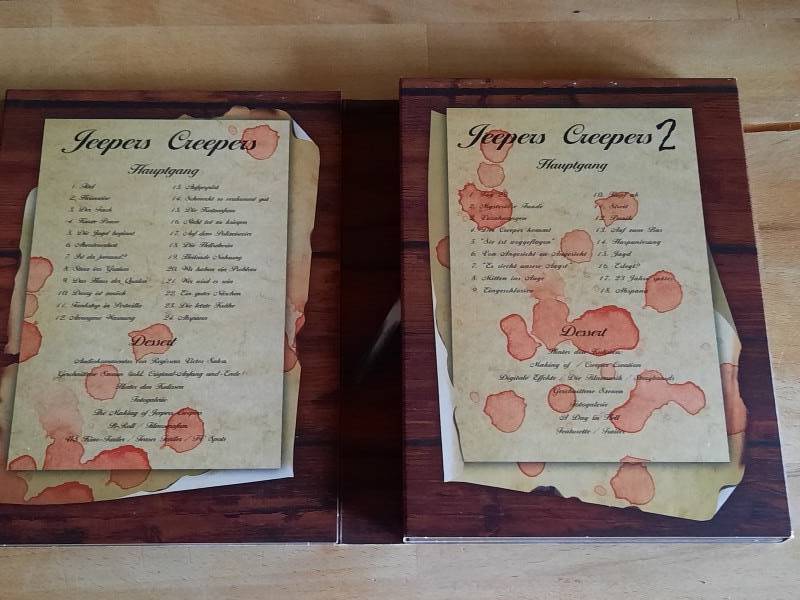 Jeepers Creepers
Hauptgang
1. Titel
3. Der Truck
5. Die Jagd beginnt
7. Ist da jemand?
9. Das Haus der Qualen
10. Darry ist zurück
12. Anonyme Warnung
13. Aufgespürt
14. Schmeckt so verdammt gut
15. Die Katzenfrau
16. Nicht tot zu kriegen
17. Auf dem Polizeirevier
18. Die Hellseherin
19. Heilende Nahrung
20. Wir haben ein Problem
21. Wer wird es sein
22. Ein gutes Näschen
23. Die letzte Reihe
24. Abspann
Dessert
Audiokommentar von Regisseur Victor Salva
Geschnittene Szenen (inkl. Original-Anfang und -Ende)
Hinter den Kulissen
Fotogalerie
The Making of Jeepers Creepers
B-Roll / Filmografien
US Kino-Trailer / Teaser Trailer / TV Spots
Jeepers Creepers 2
Hauptgang
2. Mysteriöse Funde
4. Der Creeper kommt
5. "Sie ist weggeflogen"
6. Von Angesicht zu Angesicht
7. "Es riecht unsere Angst"
8. Mitten ins Auge
9. Eingeschlossen
11. Streit
12. Panik
13. Auf zum Bus
14. Harpunierung
15. Jagd
16. Erlegt?
17. 23 Jahre später
18. Abspann
Dessert
Hinter den Kulissen:
Making of / Creeper Creation
Digitale Effekte / Die Filmmusik / Storyboards
Geschnittene Szenen
Fotogalerie
A Day in Hell
Featurette / Trailer